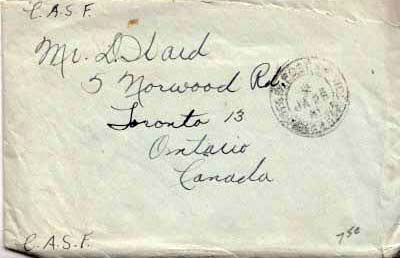 C.A.S.F.
Mr. D. Ward
5 Norwood Rd,
Toronto 13
Ontario
Canada
JA 28
C.A.S.F.
7.50